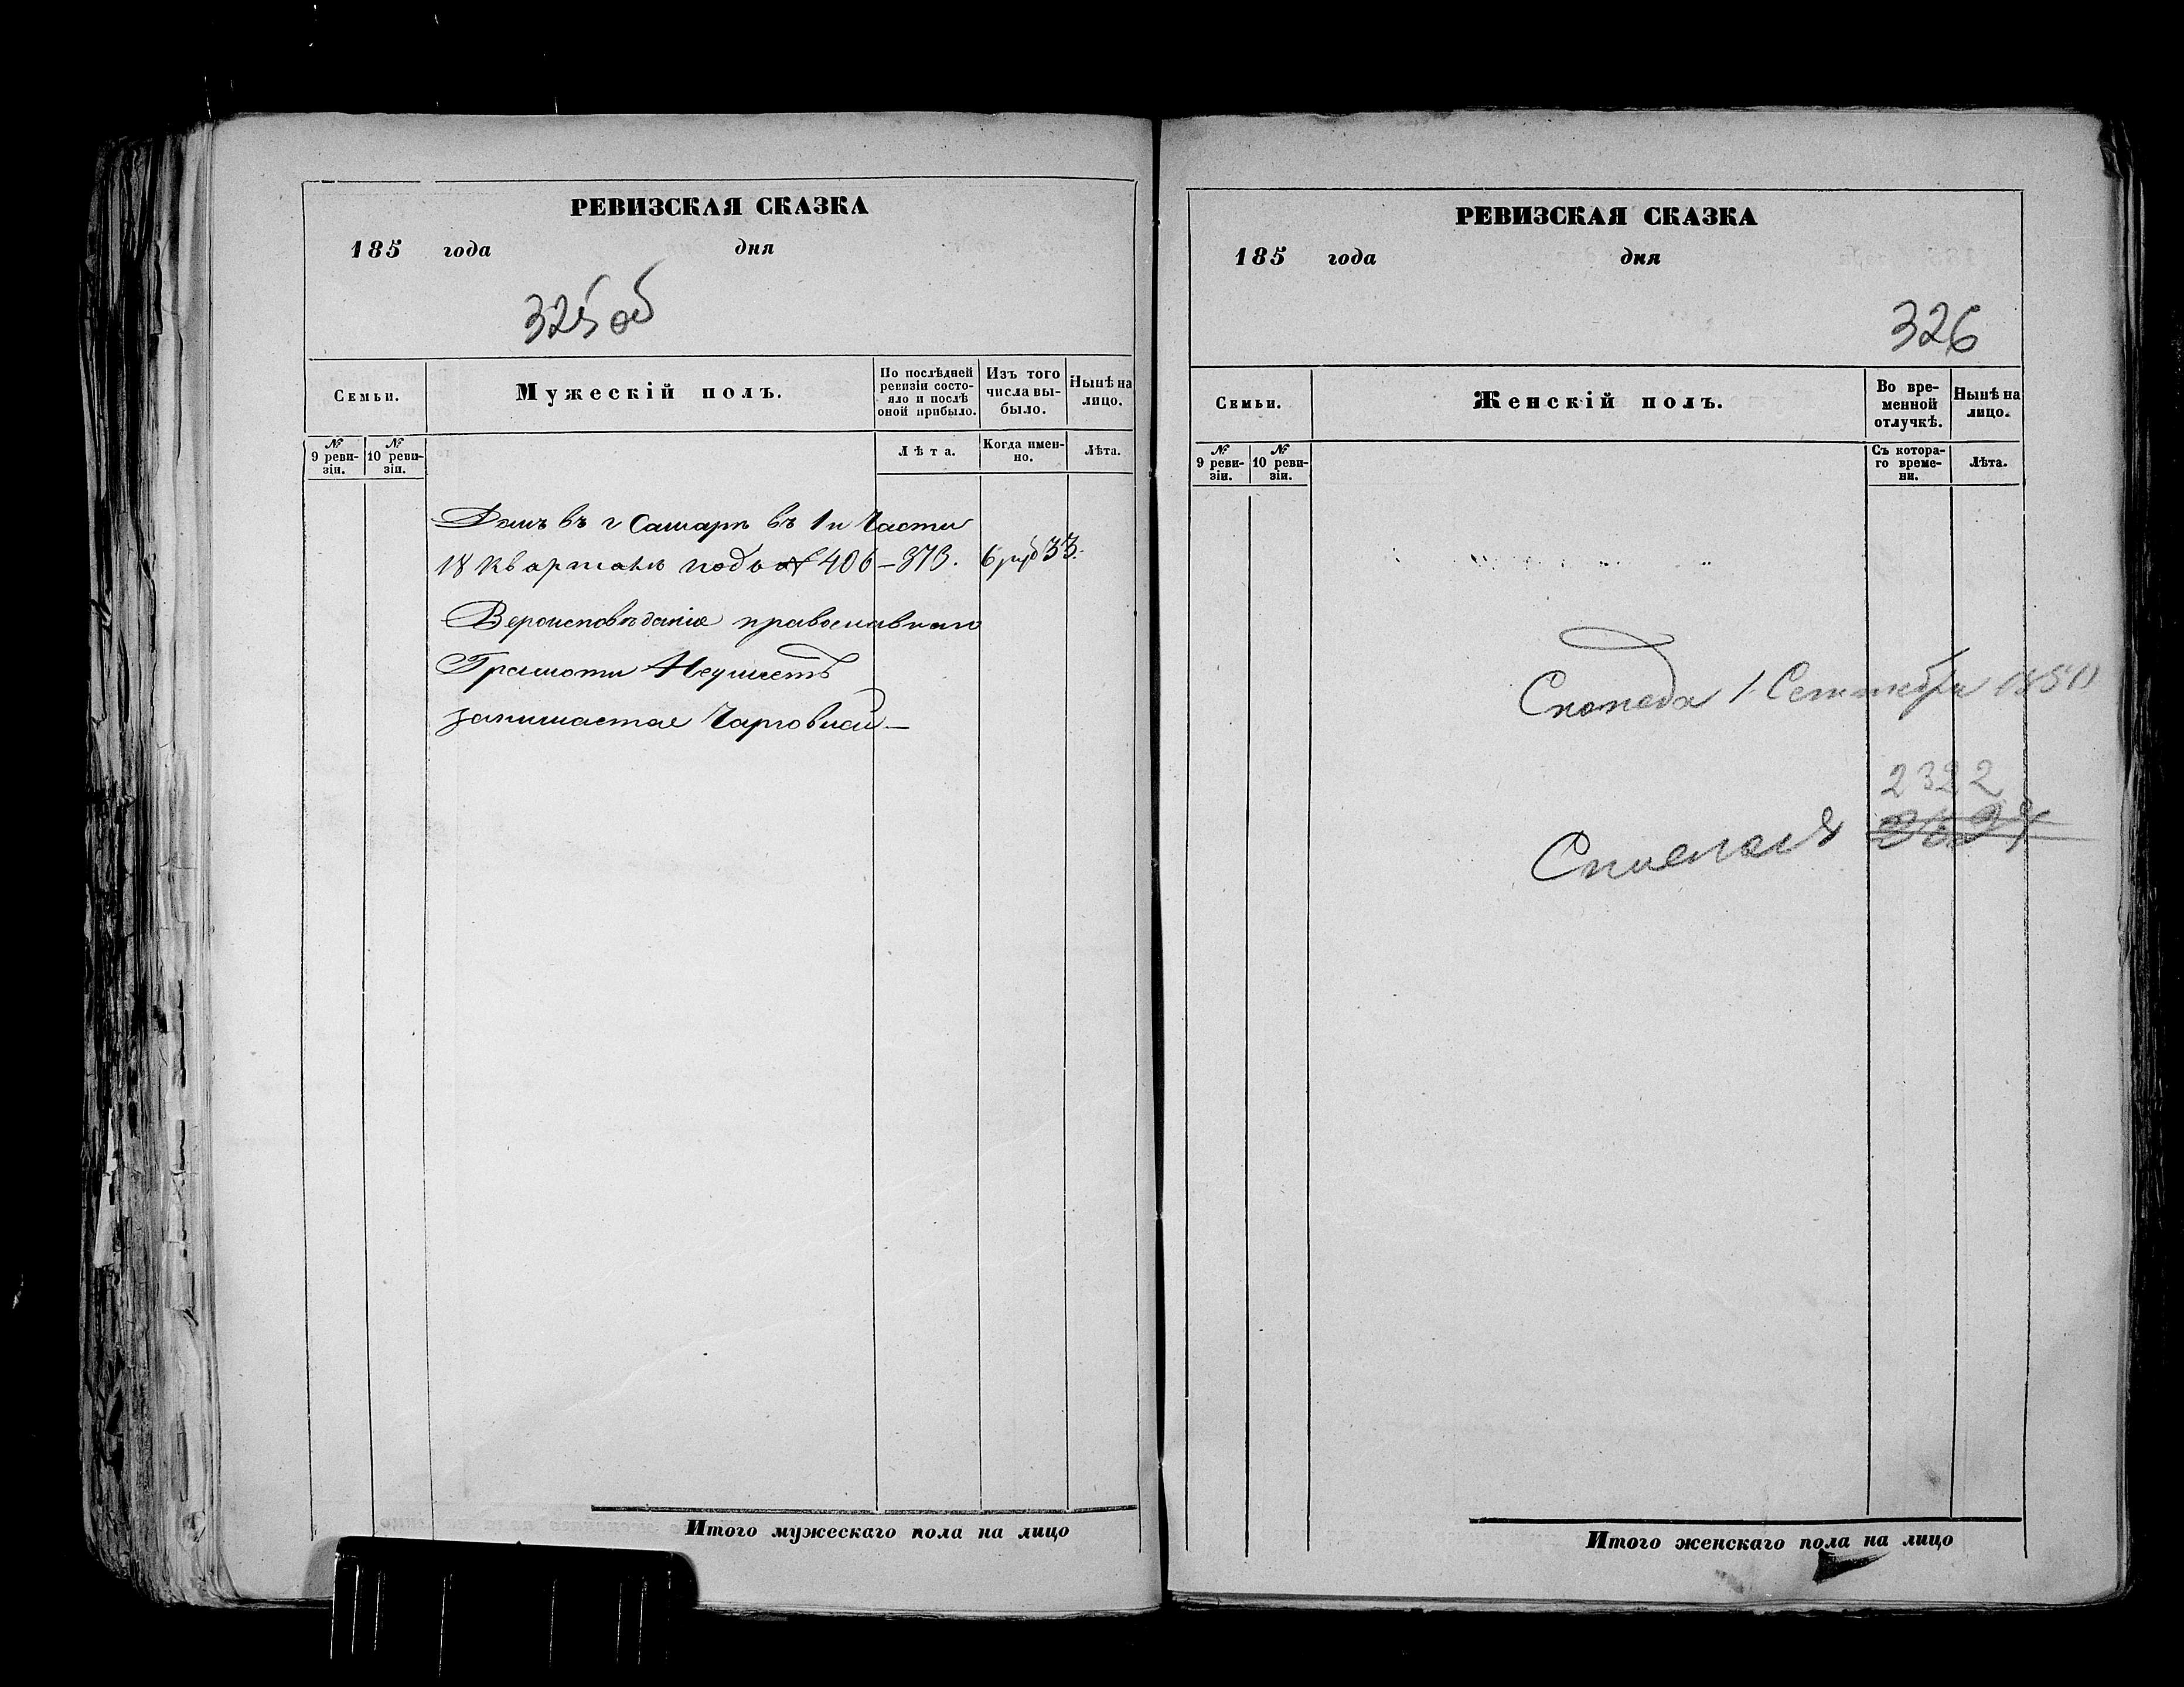 РЕВИЗСКАЯ СКАЗКА
185 года дня
325 об
Семьи.
Мужескій полъ.
По послѣдней ревизіи состояло и послѣ оной прибыло.
Изъ того числа выбыло.
Нынѣ на лицо.
№ 9 ревизіи.
№ 10 ревизіи.
Лѣта.
Когда именно.
Лѣта.
Домъ въ г Самарѣ въ 1й Части
18 кварталѣ подъ № 406 – 373. 6 руб 33.
Вероисповѣданія православнаго
Грамоти Неумеетъ
занимается Торговлей –
РЕВИЗСКАЯ СКАЗКА
185 года дня
326
Семьи.
Женскій полъ.
Во временной отлучкѣ.
Нынѣ на лицо.
№ 9 ревизіи.
№ 10 ревизіи.
Съ котораго времени.
Лѣта.
1 Сентября
2322
Итого мужескаго пола на лицо
Итого женскаго пола на лицо